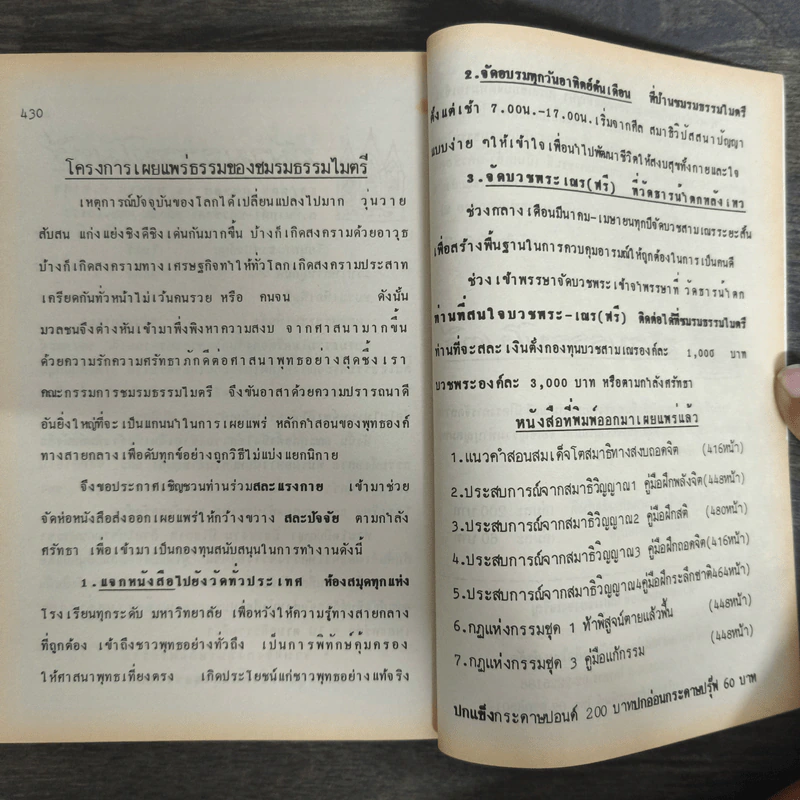 430
โครงการเผยแพร่ธรรมของชมรมธรรมไมตรี
เหตุการณ์ปัจจุบันของโลกได้เปลี่ยนแปลงไปมาก วุ่นวาย
สับสน แก่งแย่งชิงดีชิงเด่นกันมากขึ้น บ้างก็เกิดสงครามด้วยอาวุธ
บ้างก็เกิดสงครามทางเศรษฐกิจทำให้ทั่วโลกเกิดสงครามประสาท
เครียดกันทั่วหน้าไม่เว้นคนรวย หรือ คนจน ดังนั้น
มวลชนจึงต่างหันเข้ามาพึ่งพิงหาความสงบ จากศาสนามากขึ้น
ด้วยความรักความศรัทธาภักดีต่อศาสนาพุทธอย่างสุดซึ้ง เรา
คณะกรรมการชมรมธรรมไมตรี จึงขันอาสาด้วยความปรารถนาดี
อันยิ่งใหญ่ที่จะเป็นแกนนำในการเผยแพร่ หลักคำสอนของพุทธองค์
ทางสายกลางเพื่อดับทุกข์อย่างถูกวิธีไม่แบ่งแยกนิกาย
จึงขอประกาศเชิญชวนท่านร่วมสละแรงกาย เข้ามาช่วย
จัดห่อหนังสือส่งออกเผยแพร่ให้กว้างขวาง สละปัจจัย ตามกำลัง
ศรัทธา เพื่อเข้ามาเป็นกองทุนสนับสนุนในการทำงานดังนี้
1.แจกหนังสือไปยังวัดทั่วประเทศ ห้องสมุดทุกแห่ง
โรงเรียนทุกระดับ มหาวิทยาลัย เพื่อหวังให้ความรู้ทางสายกลาง
ที่ถูกต้อง เข้าถึงชาวพุทธอย่างทั่วถึง เป็นการพิทักษ์คุ้มครอง
ให้ศาสนาพุทธเที่ยงตรง เกิดประโยชน์แก่ชาวพุทธอย่างแท้จริง
2.จัดอบรมทุกวันอาทิตย์ต้นเดือน ที่บ้านชมรมธรรมไมตรี
ตั้งแต่เช้า 7.00น.-17.00น.เริ่มจากศีล สมาธิวิปัสสนาปัญญา
แบบง่าย ๆให้เข้าใจเพื่อนำไปพัฒนาชีวิตให้สงบสุขทั้งกายและใจ
3.จัดบวชพระเณร(ฟรี) ที่วัดธารน้ำตกพลังเทว
ช่วงกลางเดือนมีนาคม-เมษายนทุกปีจัดบวชสามเณรระยะสั้น
เพื่อสร้างพื้นฐานในการควบคุมอารมณ์ให้ถูกต้องในการเป็นคนดี
ช่วงเข้าพรรษาจัดบวชพระเข้าจำพรรษาที่ วัดธารน้ำตก
ท่านที่สนใจบวชพระ-เณร(ฟรี) ติดต่อได้ที่ชมรมธรรมไมตรี
ท่านที่จะสละเงินตั้งกองทุนบวชสามเณรองค์ละ 1,000 บาท
บวชพระองค์ละ 3,000 บาท หรือตามกำลังศรัทธา
หนังสือที่พิมพ์ออกมาเผยแพร่แล้ว
1.แนวคำสอนสมเด็จโตสมาธิทางสงบถอดจิต (416หน้า)
2.ประสบการณ์จากสมาธิวิญญาณ1 คู่มือฝึกพลังจิต(448หน้า)
3.ประสบการณ์จากสมาธิวิญญาณ2 คู่มือฝึกสติ (480หน้า)
4.ประสบการณ์จากสมาธิวิญญาณ3 คู่มือฝึกถอดจิต(416หน้า)
5.ประสบการณ์จากสมาธิวิญญาณ4คู่มือฝึกระลึกชาติ464หน้า)
6.กฎแห่งกรรมชุด 1 ท้าพิสูจน์ตายแล้วฟื้น (448หน้า)
7.กฎแห่งกรรมชุด 3 คู่มือแก้กรรม (448หน้า)
ปกแข็งกระดาษปอนด์ 200 บาทปกอ่อนกระดาษปรู๊ฟ 60 บาท